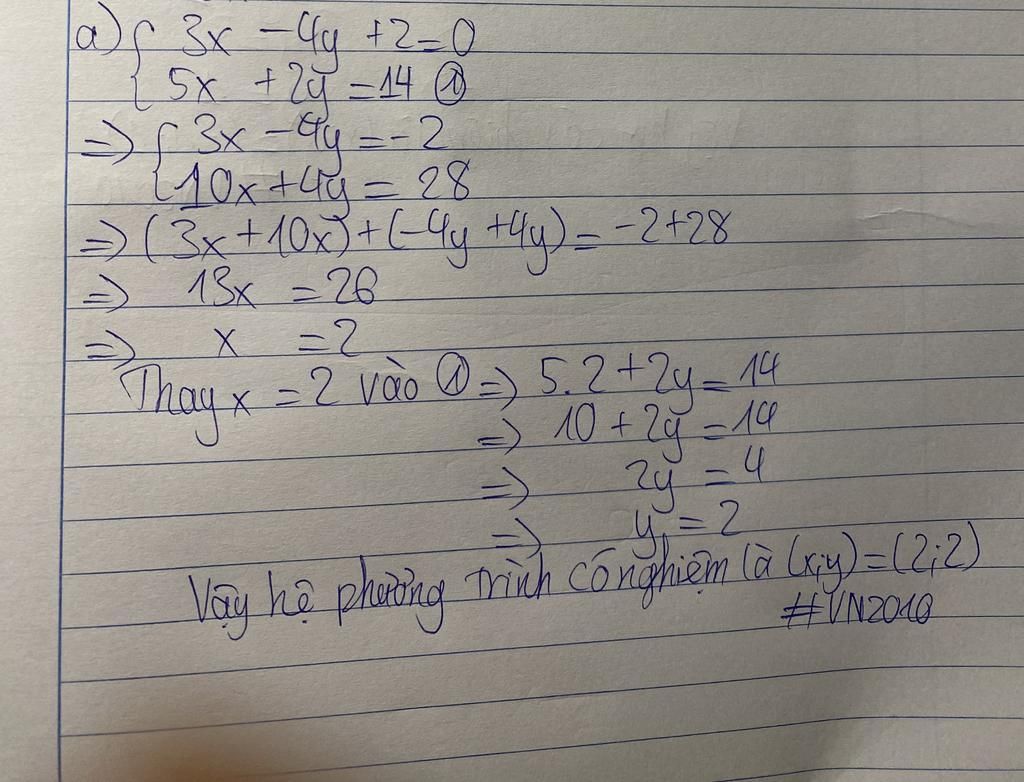 a) { 3x - 4y + 2 = 0
5x + 2y = 14 ①
=> { 3x - 4y = -2
10x + 4y = 28
=> (3x + 10x) + (-4y + 4y) = -2 + 28
=> 13x = 26
=> x = 2
Thay x = 2 vào ① => 5.2 + 2y = 14
=> 10 + 2y = 14
=> 2y = 4
=> y = 2
Vậy hệ phương trình có nghiệm là (x;y) = (2;2)
#VN2010